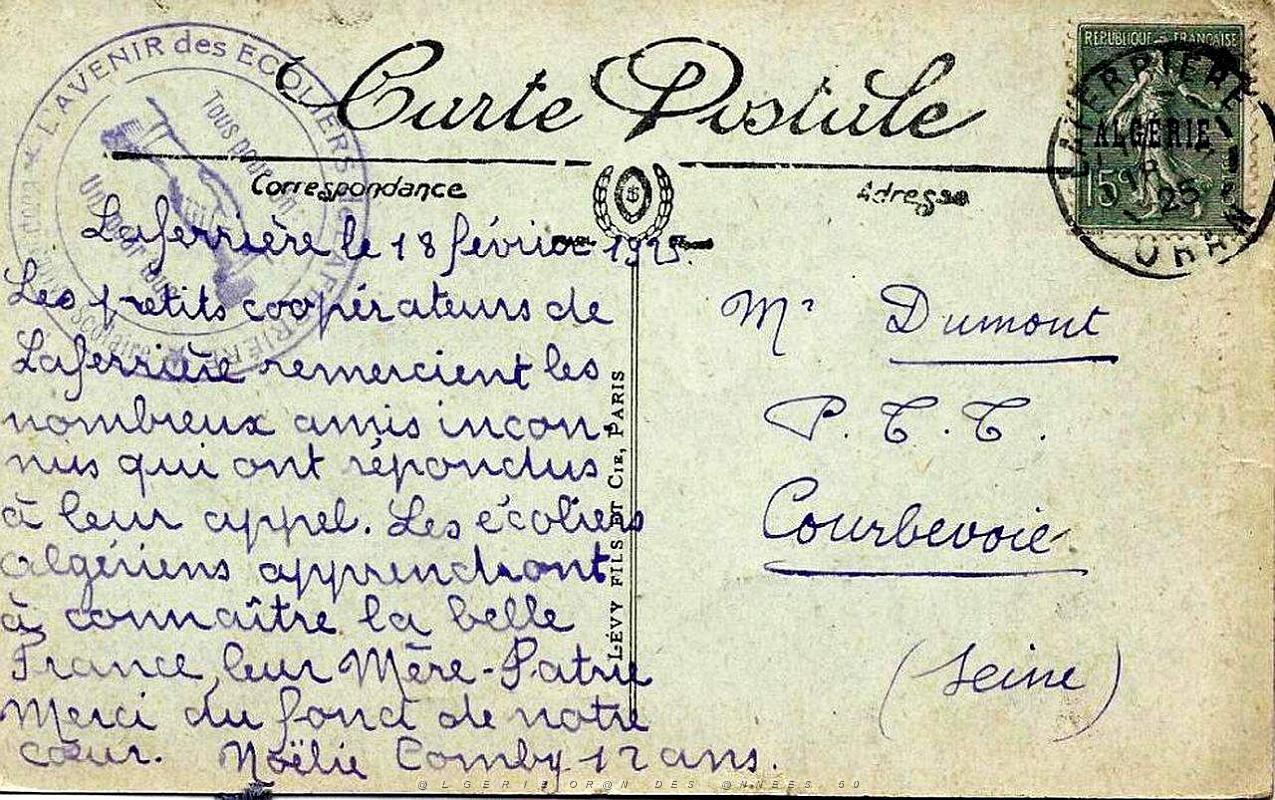 L'AVENIR des ECOLIERS de LAFERRIÈRE
Tous pour un
Un pour tous
Carte Postale
Correspondance
Adresse
RÉPUBLIQUE FRANÇAISE
ALGÉRIE
15
LAFERRIERE
18
25
ORAN
Laferrière le 18 février 1925.
Les petits coopérateurs de
Laferrière remercient les
nombreux amis incon-
nus qui ont répondus
à leur appel. Les écoliers
algériens apprendront
à connaître la belle
France, leur Mère-Patrie
Merci du fond de notre
cœur. Noëlie Comby 12 ans.
LÉVY FILS ET CIE, PARIS
Mr Dumont
P.T.T.
Courbevoie
(Seine)
@LGERIE OR@N DES @NNEES 50